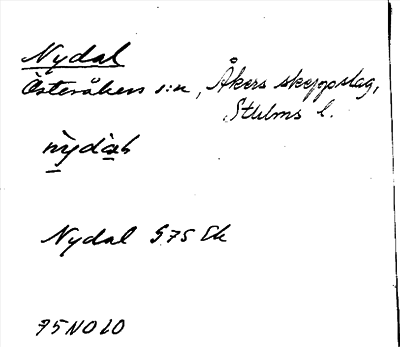 Nydal
Österåkers s:n, Åkers skeppslag,
Sthlms l.
Nydal 575 Ek
75N0 20